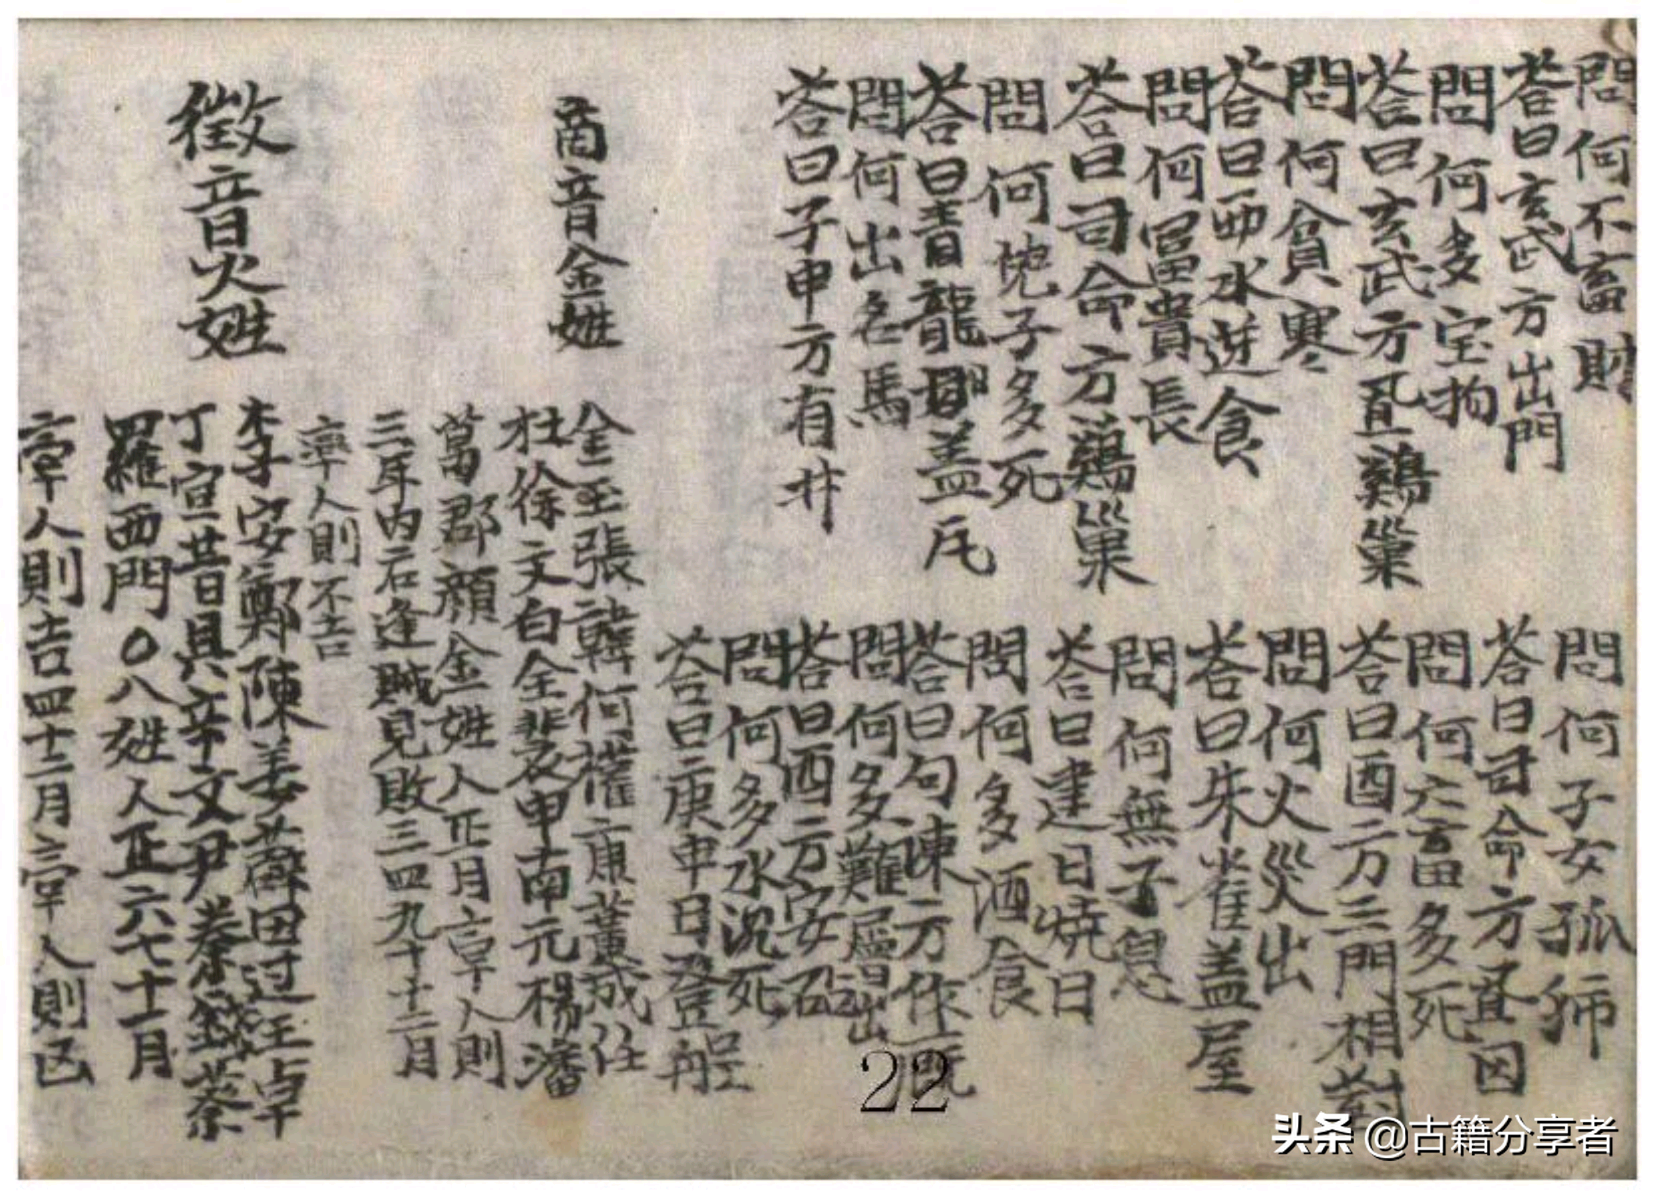 問何不畜財
荅曰玄武方出門
問何多宝物
荅曰玄武方瓦置鷄巢
問何貪寒
荅曰西水遊食
問何冨貴長
荅曰司命方鷄巢
問何児子多死
荅曰青龍日盖瓦
問何出名馬
荅曰子申方有井
問何子女孤
荅曰司命方
問何六畜多死
荅曰酉二方三門相對
問何火災出
荅曰朱雀盖屋
問何無子息
荅曰建日燒日
問何多酒食
荅曰句陳方作厩
問何多難
荅曰西二方安
問何多水沉死
荅曰庚申日登舡
商音金姓
金王張韓何權康董成任
杜徐文白全裴申南元楊潘
葛郡顔金姓人正月宰人則
三年內必逢賊見敗三四九十十二月
宰人則不吉
徵音火姓
李安鄭陳姜薛田辺王卓
丁宣昔具辛文尹秦錢蔡
羅西門〇八姓人正六七十一月
宰人則吉四十二月宰人則凶
22
头条 @古籍分享者